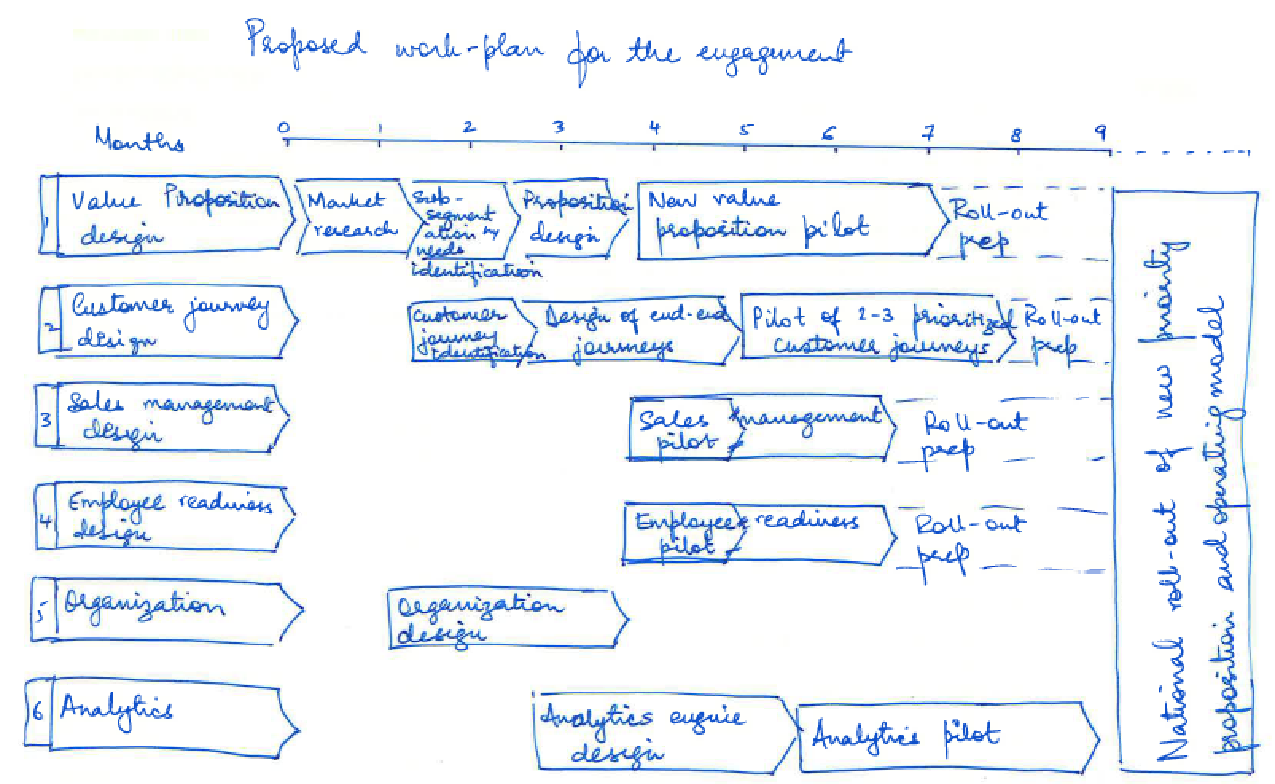 Proposed work-plan for the engagement
Months
0 1 2 3 4 5 6 7 8 9
1
Value Proposition
design
Market
research
Sub-
segment
ation by
needs
identification
Proposition
design
New value
proposition pilot
Roll-out
prep
2
Customer journey
design
Customer
journey
identification
Design of end-end
journeys
Pilot of 2-3 prioritized
customer journeys
Roll-out
prep
3
Sales management
design
Sales management
pilot
Roll-out
prep
4
Employee readiness
design
Employee readiness
pilot
Roll-out
prep
5
Organization
Organization
design
6
Analytics
Analytics engine
design
Analytics pilot
National roll-out of new priority
proposition and operating model